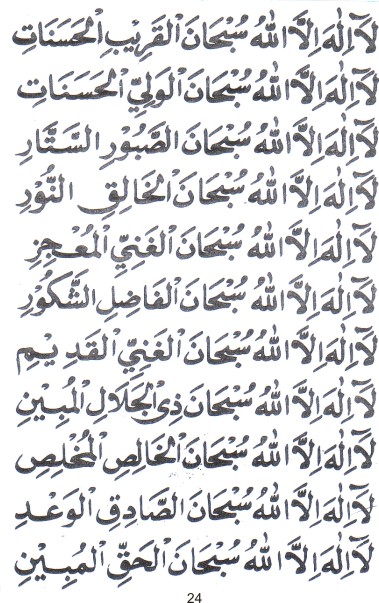 لَآ اِلٰهَ اِلَّا اللهُ سُبْحَانَ الْقَرِيْبِ الْحَسَنَاتِ
لَآ اِلٰهَ اِلَّا اللهُ سُبْحَانَ الْوَلِيِّ الْحَسَنَاتِ
لَآ اِلٰهَ اِلَّا اللهُ سُبْحَانَ الصَّبُوْرِ السَّتَّارِ
لَآ اِلٰهَ اِلَّا اللهُ سُبْحَانَ الْخَالِقِ النُّوْرِ
لَآ اِلٰهَ اِلَّا اللهُ سُبْحَانَ الْغَنِيِّ الْمُعْجِزِ
لَآ اِلٰهَ اِلَّا اللهُ سُبْحَانَ الْفَاضِلِ الشَّكُوْرِ
لَآ اِلٰهَ اِلَّا اللهُ سُبْحَانَ الْغَنِيِّ الْقَدِيْمِ
لَآ اِلٰهَ اِلَّا اللهُ سُبْحَانَ ذِى الْجَلَالِ الْمُبِيْنِ
لَآ اِلٰهَ اِلَّا اللهُ سُبْحَانَ الْخَالِصِ الْمُخْلِصِ
لَآ اِلٰهَ اِلَّا اللهُ سُبْحَانَ الصَّادِقِ الْوَعْدِ
لَآ اِلٰهَ اِلَّا اللهُ سُبْحَانَ الْحَقِّ الْمُبِيْنِ
24